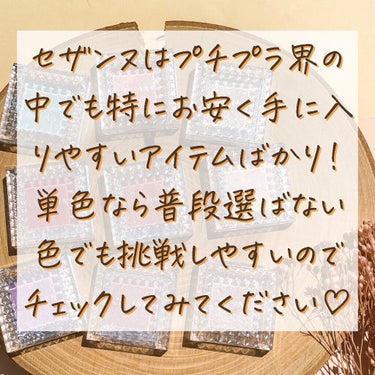 セザンヌはプチプラ界の
中でも特にお安く手に入
りやすいアイテムばかり!
単色なら普段選ばない
色でも挑戦しやすいので
チェックしてみてください♡